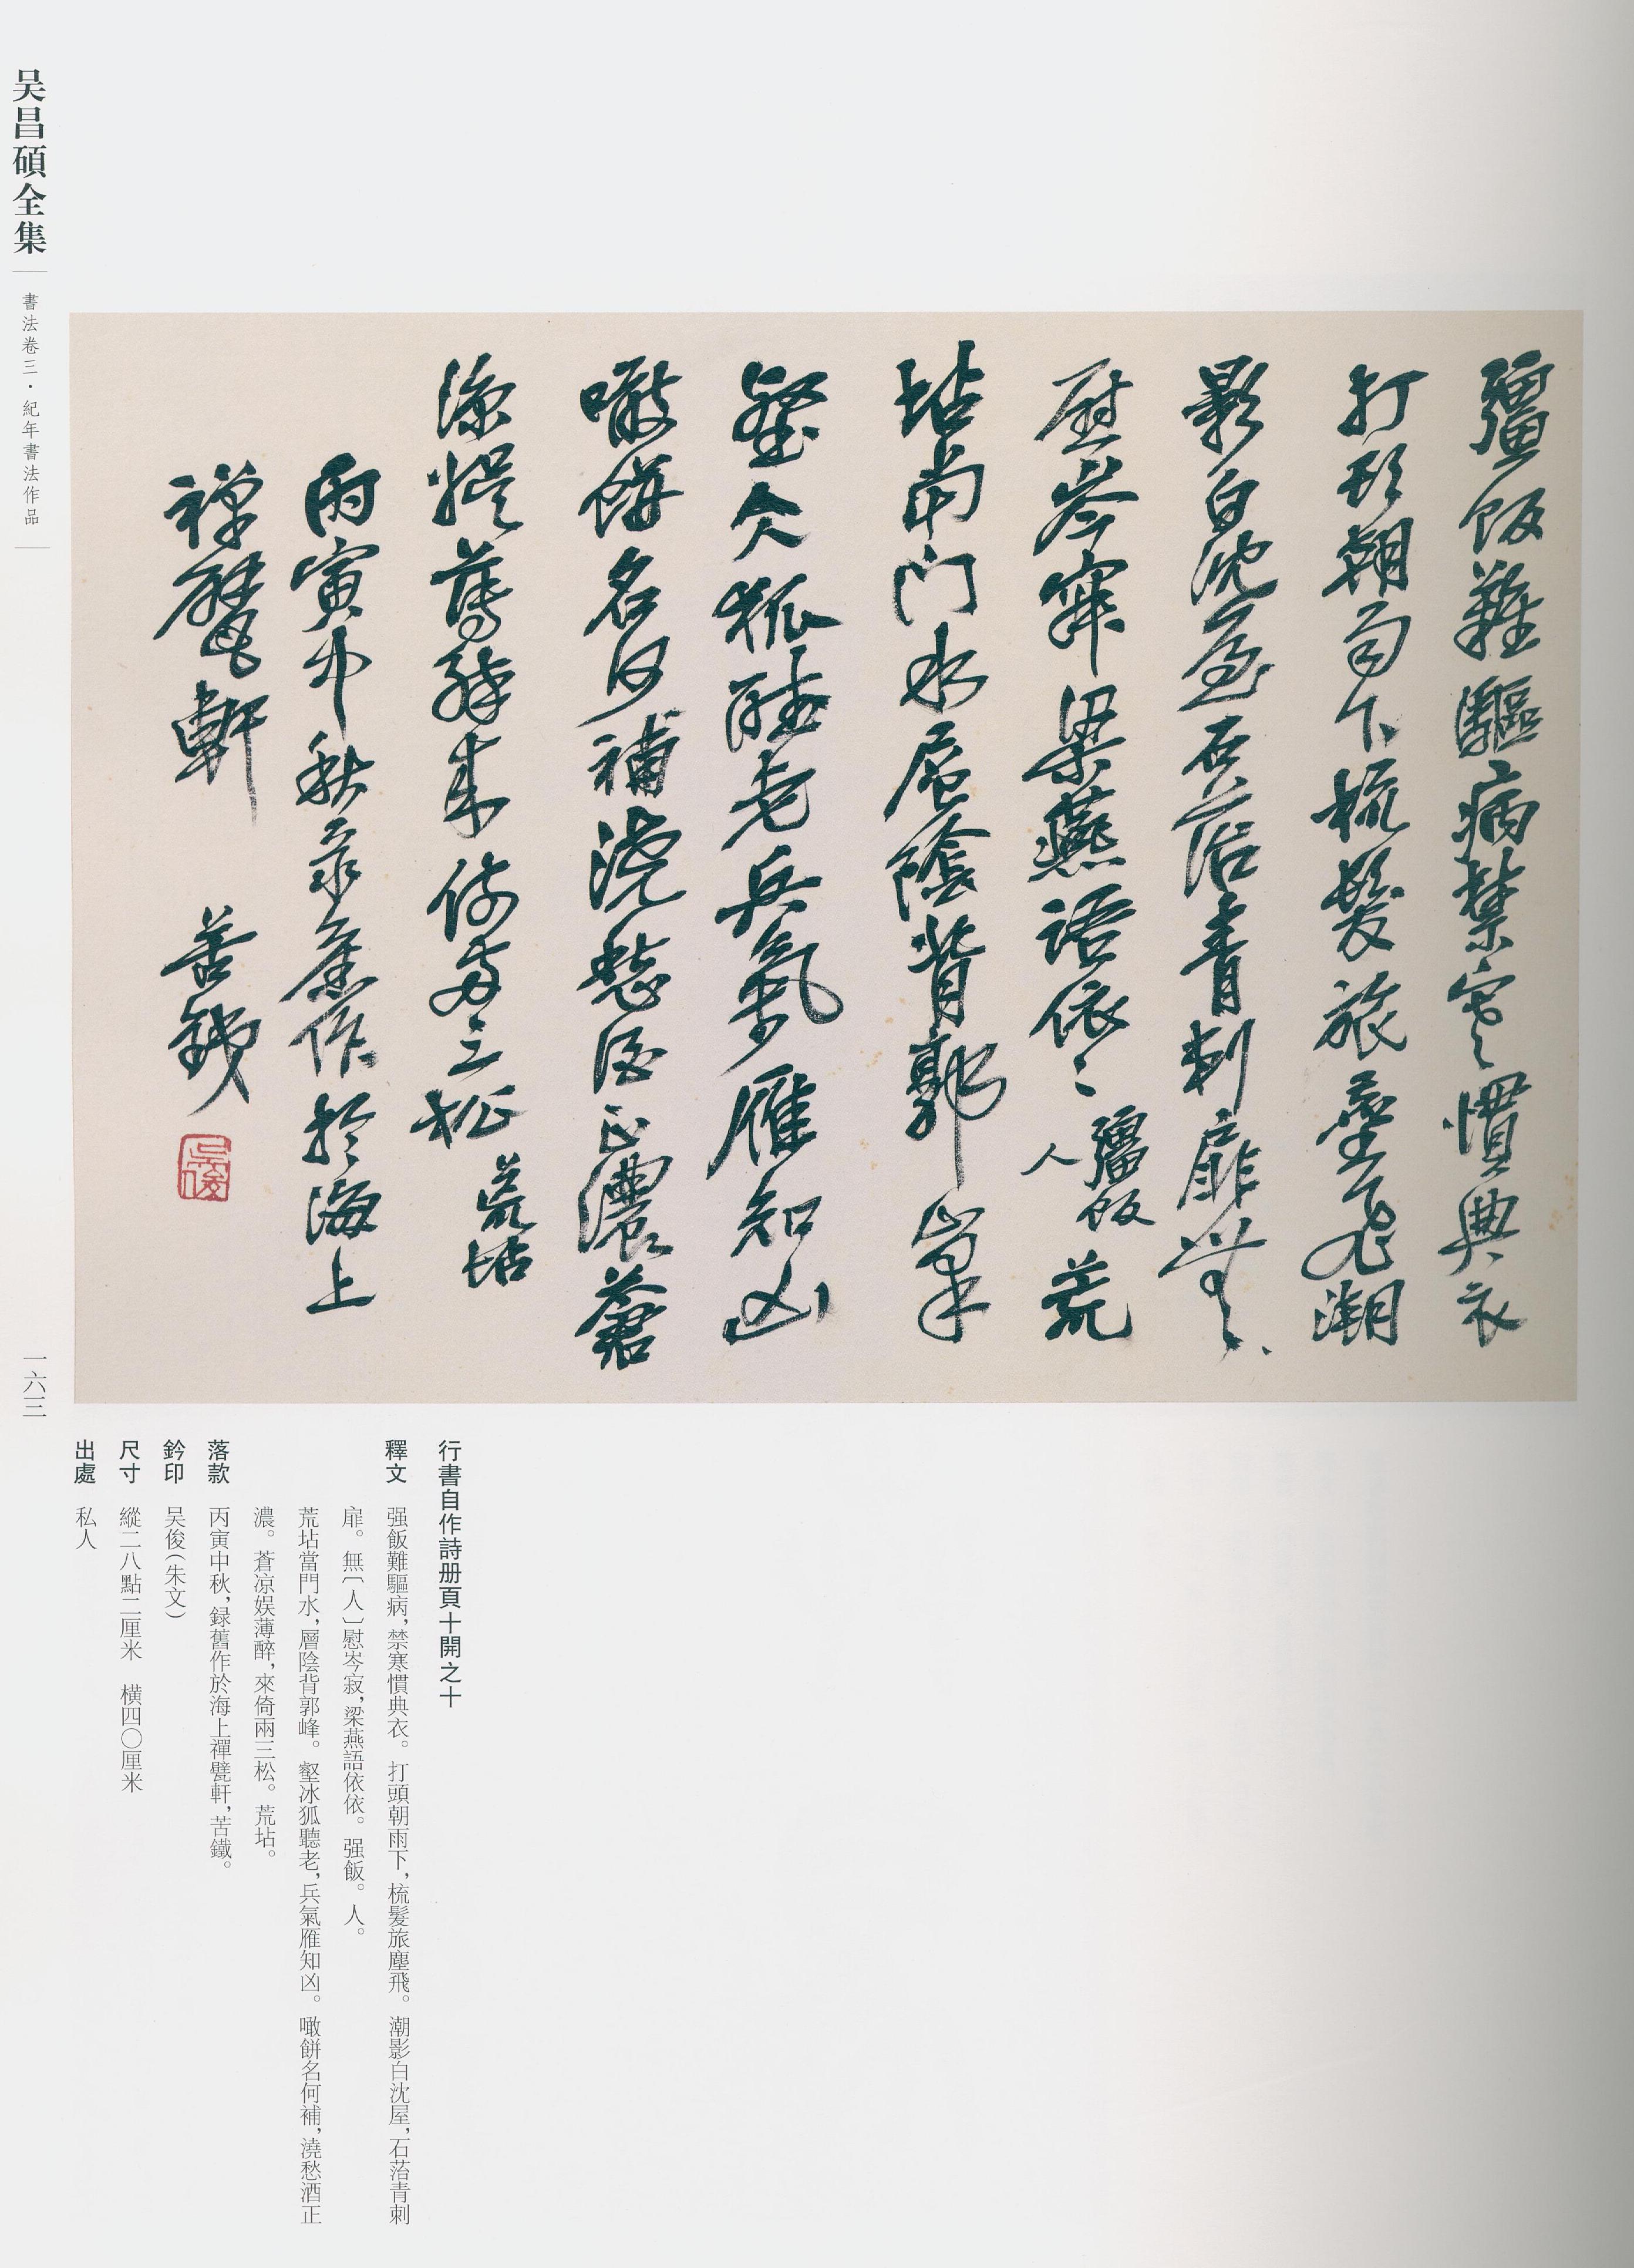 彊飯難驅病禁寒慣典衣
打頭朝雨下梳髮旅塵飛潮
影白沈屋石菭青刺扉無
慰岑寂梁燕語依〻 彊飯 人 荒
坫當門水層陰背郭峯
壑仌狐聽老兵氣雁知凶
噉餅名何補澆愁酒正濃蒼
涼娛薄醉來倚兩三松 荒坫
丙寅中秋录舊作於海上
禪甓軒 苦鐵
吳俊
行書自作詩册頁十開之十
釋文 强飯難驅病,禁寒慣典衣。打頭朝雨下,梳髮旅塵飛。潮影白沈屋,石菭青刺
扉。無〔人〕慰岑寂,梁燕語依依。强飯。人。
荒坫當門水,層陰背郭峰。壑冰狐聽老,兵氣雁知凶。噉餅名何補,澆愁酒正
濃。蒼凉娱薄醉,來倚兩三松。荒坫。
落款 丙寅中秋,録舊作於海上禪甓軒,苦鐵。
鈐印 吴俊(朱文)
尺寸 縱二八點二厘米 橫四〇厘米
出處 私人
吴昌碩全集
書法卷三·紀年書法作品
一六三